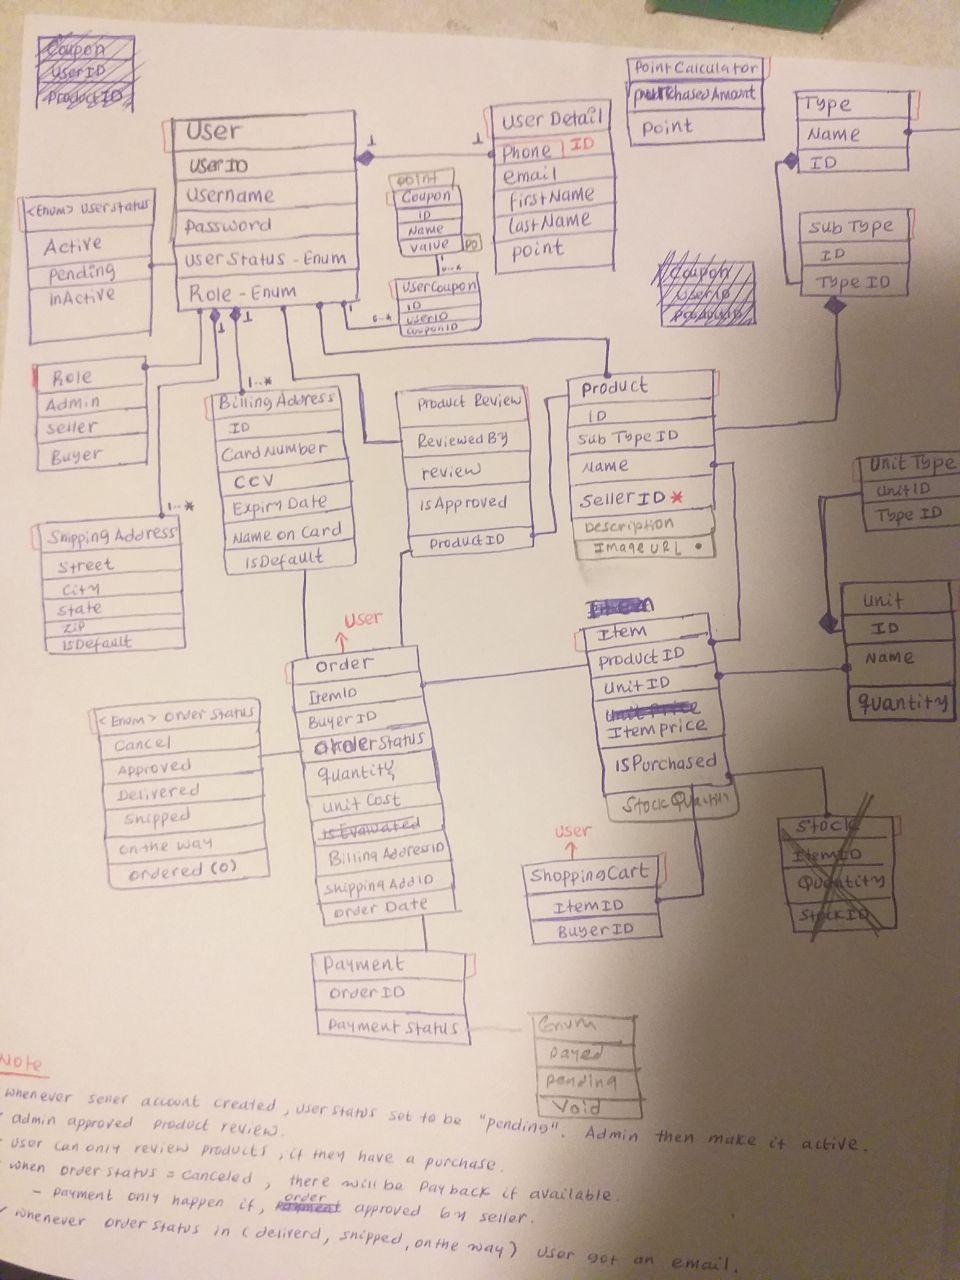 Coupon
UserID
ProductID
User
UserID
Username
Password
User Status - Enum
Role - Enum
1
1
User Detail
Phone | ID
email
firstName
lastName
point
Point Calculator
purchasedAmount
point
Type
Name
ID
Sub Type
ID
Type ID
<Enum> UserStatus
Active
Pending
inActive
point
Coupon
ID
Name
Value
0..*
UserCoupon
ID
UserID
CouponID
1
0..*
Coupon
UserID
ProductID
Role
Admin
Seller
Buyer
1
1
1..*
Billing Address
ID
Card Number
CCV
Expiry Date
Name on Card
isDefault
Product Review
Reviewed By
review
isApproved
ProductID
Product
ID
Sub Type ID
Name
Seller ID *
Description
Image URL
Unit Type
UnitID
Type ID
1..*
Shipping Address
Street
City
State
Zip
isDefault
Unit
ID
Name
quantity
User
Order
ItemID
Buyer ID
OrderStatus
quantity
Unit Cost
is Evaluated
Billing AddressID
Shipping AddID
Order Date
Item
Item
Product ID
Unit ID
Unit Price
Item price
isPurchased
Stock Quantity
<Enum> Order Status
Cancel
Approved
Delivered
Shipped
on the way
ordered (0)
User
ShoppingCart
ItemID
Buyer ID
Stock
ItemID
Quantity
StockID
Payment
Order ID
Payment Status
Enum
payed
pending
Void
Note
whenever seller account created, user status set to be "pending". Admin then make it active.
admin approved product review.
user can only review products, if they have a purchase.
when order status = canceled, there will be payback if available.
- payment only happen if, payment order approved by seller.
whenever order status in (deliverd, shipped, on the way) user got an email.